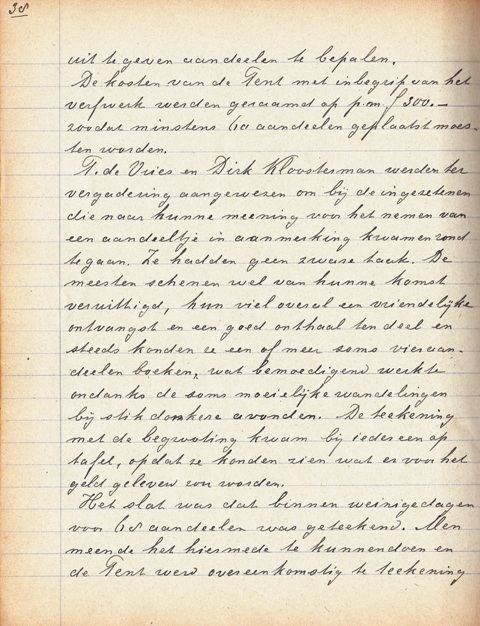 38
uit te geven aandeelen te bepalen.
De kosten van de Tent met inbegrip van het
verfwerk werden geraamd op p.m. f 300.—
zoodat minstens 60 aandeelen geplaatst moes-
ten worden.
T. de Vries en Dirk Kloosterman werden ter
vergadering aangewezen om bij de ingezetenen
die naar hunne meening voor het nemen van
een aandeeltje in aanmerking kwamen rond
te gaan. Ze hadden geen zware taak. De
meesten schenen wel van hunne komst
verwittigd, hun viel overal een vriendelijke
ontvangst en een goed onthaal ten deel en
steeds konden ze een of meer soms vier aan-
deelen boeken, wat bemoedigend werkte
ondanks de soms moeielijke wandelingen
bij stikdonkere avonden. De teekening
met de begrooting kwam bij iedereen op
tafel, opdat ze konden zien wat er voor het
geld geleverd zou worden.
Het slot was dat binnen weinige dagen
voor 68 aandeelen was geteekend. Men
meende het hiermede te kunnen doen en
de Tent werd overeenkomstig te teekening